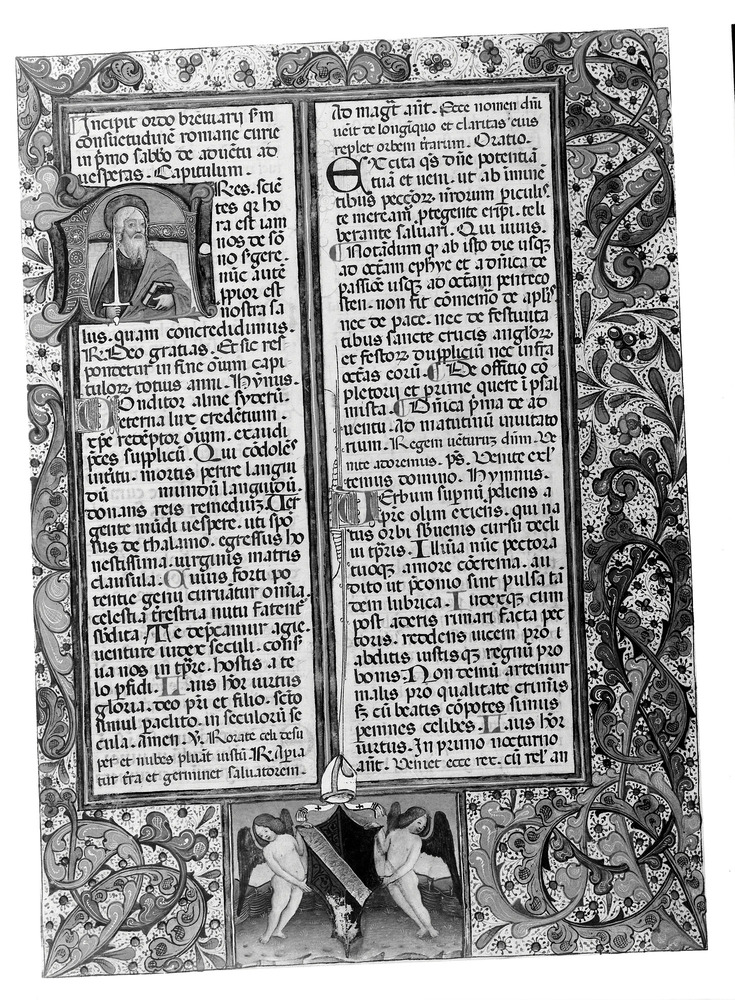 Incipit ordo breviarij scdm
consuetudinē romane curie
in pͥmo sabbo de advētu ad
vesperas. Capitulum.
FRes. sciē
tes qꝛ ho
ra est iam
nos de sō
no sꝰgere.
nūc autē
ꝓpior est
nostra sa
lus. quam concredidimus.
R. Deo gratias. Et sic res
pondetur in fine oīum capi
tulorꝝ totius anni. Hymnus.
Conditor alme syderū.
eterna lux credētium.
xp̄e redēptor oīum. exaudi
p̄ces supplicū. Qui cōdolēs
intitu. mortis perire
dū mundū languidū.
donans reis remediū. Uer
gente mūdi vespere. uti spō
sus de thalamo. egressus ho
nestissima. virginis matris
clausula. Cuius forti po
tentie genu curvātur omīa.
celestia terrestria nutu fatent
subdita. Te dep̄camur agie.
venture iudex seculi. cons
va nos in tp̄re. hostis a te
lo ꝑfidi. Laus honor virtus
gloria. deo pr̄i et filio. sc̄to
simul paraclito. in seculorū se
cula. Amen. V. Rorate celi desu
per et nubes pluāt iustū. R. Aꝑia
tur t̄ra et germinet salvatorem.
Ad magt̄ ant̄. Ecce nomen dn̄i
veīt de longiquo et claritas eius
replet orbem t̄rarum. Oratio.
EXcita qs dn̄e potentiā
tuā et veni. ut ab imīnē
tibus peccorꝝ. nr̄orum ꝑiculis
te mereamur ꝓtegente eripi. te li
berante salvari. Qui vivis.
Notādum qꝰ ab isto die usqꝫ
ad octam ephye et a dn̄ica de
passiōe usqꝫ ad octam penteco
sten. non fit cōmemō de aplis.
nec de pace. nec de festivita
tibus sancte crucis anglorꝝ.
et festorꝝ duplicium nec infra
octas eorū. De offitio cō
pletorij et prime quere ī psal
mista. Dn̄ica pͥma de ad
ventu. Ad matutinū invitato
rium. Regem vēturum dn̄m. Ve
nite adoremus. ps. Venite exl
temus domino. Hymnus.
VErbum supnū ꝓdiens a
pr̄e olim exiens. qui na
tus orbi subvenis cursu decli
vi tp̄ris. Illūa nūc pectora
tuoqꝫ amore cōcrema. au
dito ut p̄conio sint pulsa tā
dem lubrica. Iudexqꝫ cum
post aderis rimari facta pec
toris. reddens vicem pro ī
abditis iustisqꝫ regnū pro
bonis. Non demū artemur
malis pro qualitate crīnis
sꝫ cū beatis cōpotes simus
perennes celibes. Laus honor
virtus. In primo nocturno
ant̄. Veniet ecce rex. cū rel' an